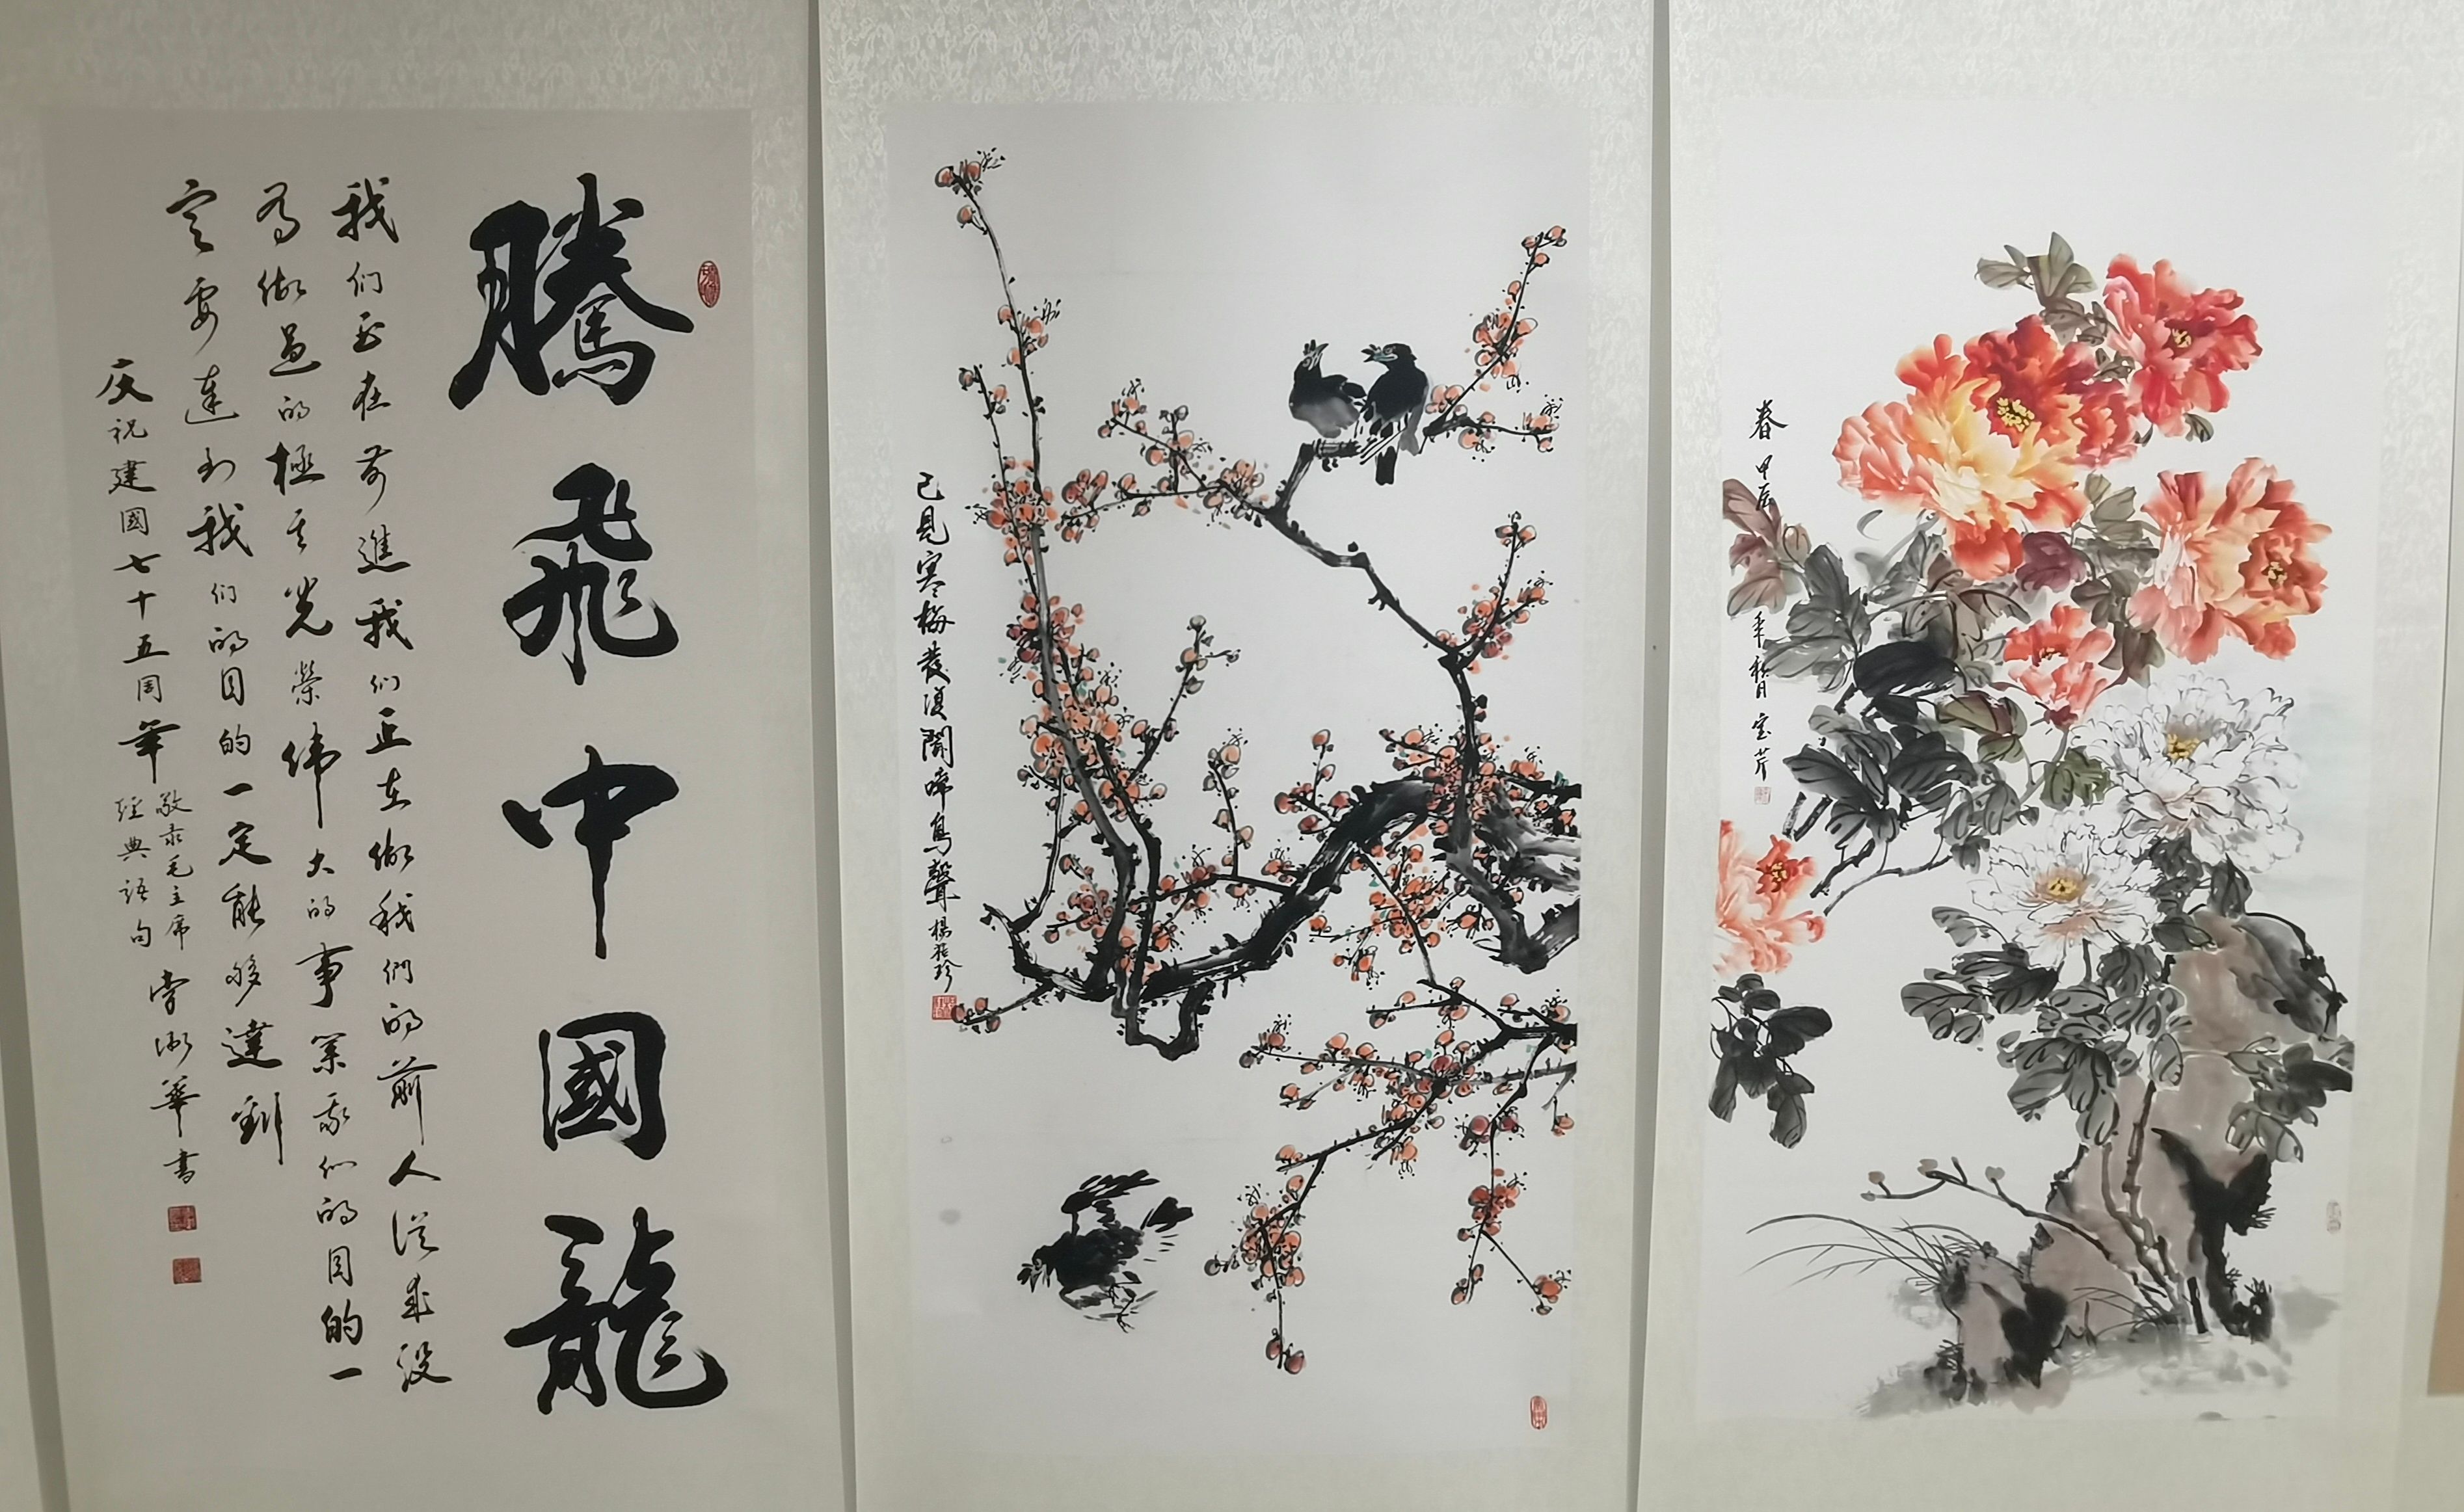 騰飛中國龍
我们正在前進我们正在做我們的前人從来没
有做過的極其光榮伟大的事業我们的目的一
定要達到我们的目的一定能够達到
庆祝建國七十五周年
敬录毛主席
经典语句
華書
已見寒梅發復聞啼鳥聲
楊 珍
春
甲辰年
宝芹